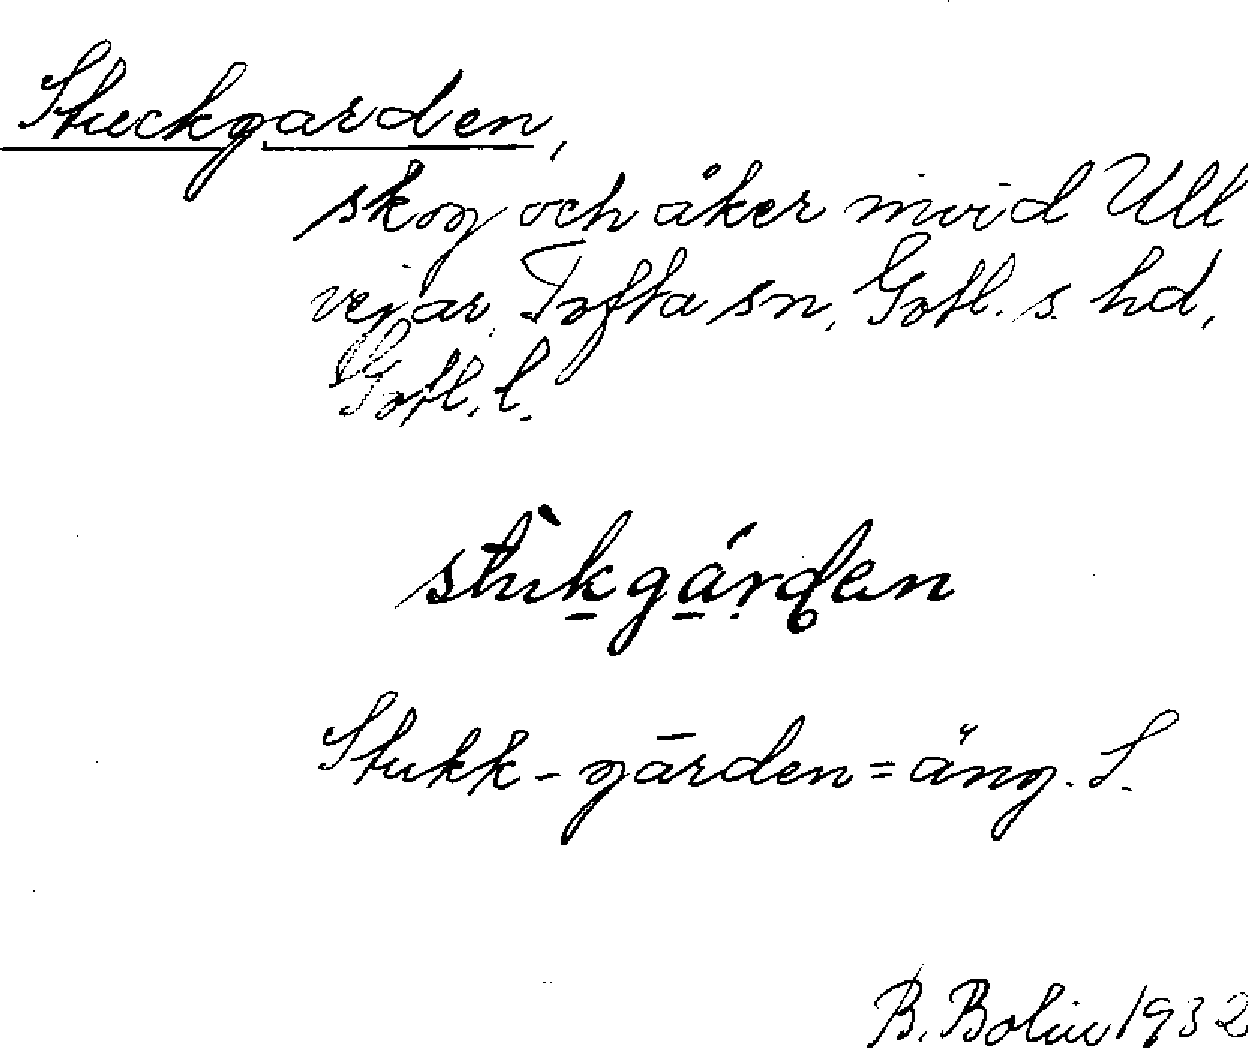 Stuckgarden,
skog och åker invid Ull
vejar, Tofta sn, Gotl. s. hd,
Gotl. l.
stùkgárdan
Stukk-gārden = äng. S.
B. Bolin 1932